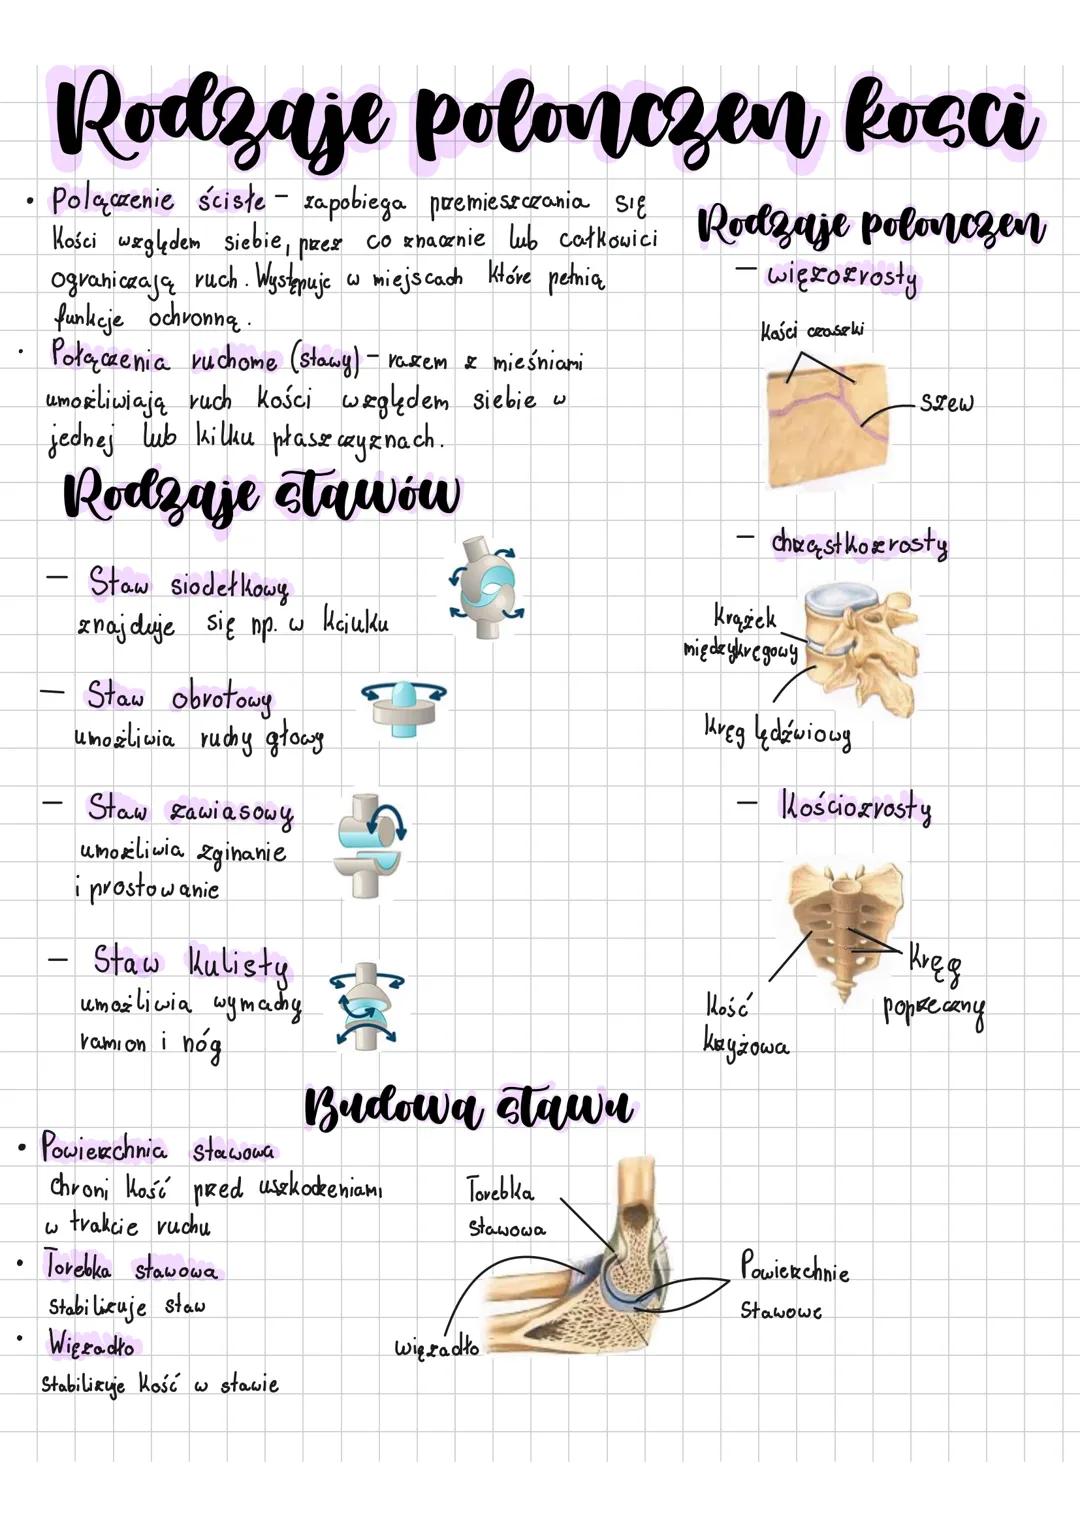 Rodzaje polonczen kosci
• Polączenie ścisłe – zapobiega przemieszczania się
kości względem siebie, przez co znacznie lub całkowici
ograniczają ruch. Występuje w miejscach które pełnią
funkcje ochronną.
• Połączenia ruchome (stawy) – razem z mieśniami
umożliwiają ruch kości względem siebie w
jednej lub kilku płaszczyznach.
Rodzaje stawów
– Staw siodełkowy
znajduje się np. w kciuku
– Staw obrotowy
umożliwia ruchy głowy
– Staw zawiasowy
umożliwia zginanie
i prostowanie
– Staw kulisty
umożliwia wymachy
ramion i nóg
Rodzaje polonczen
– więzozrosty
kości czaszki
szew
– chrząstkozrosty
Krążek
międzykręgowy
kręg lędźwiowy
– kościozrosty
kość
krzyżowa
kręg
poprzeczny
Budowa stawu
• Powierzchnia stawowa
Chroni kość przed uszkodzeniami
w trakcie ruchu
• Torebka stawowa
Stabilizuje staw
• Więzadło
Stabilizuje kość w stawie
Torebka
stawowa
więzadło
Powierzchnie
Stawowe